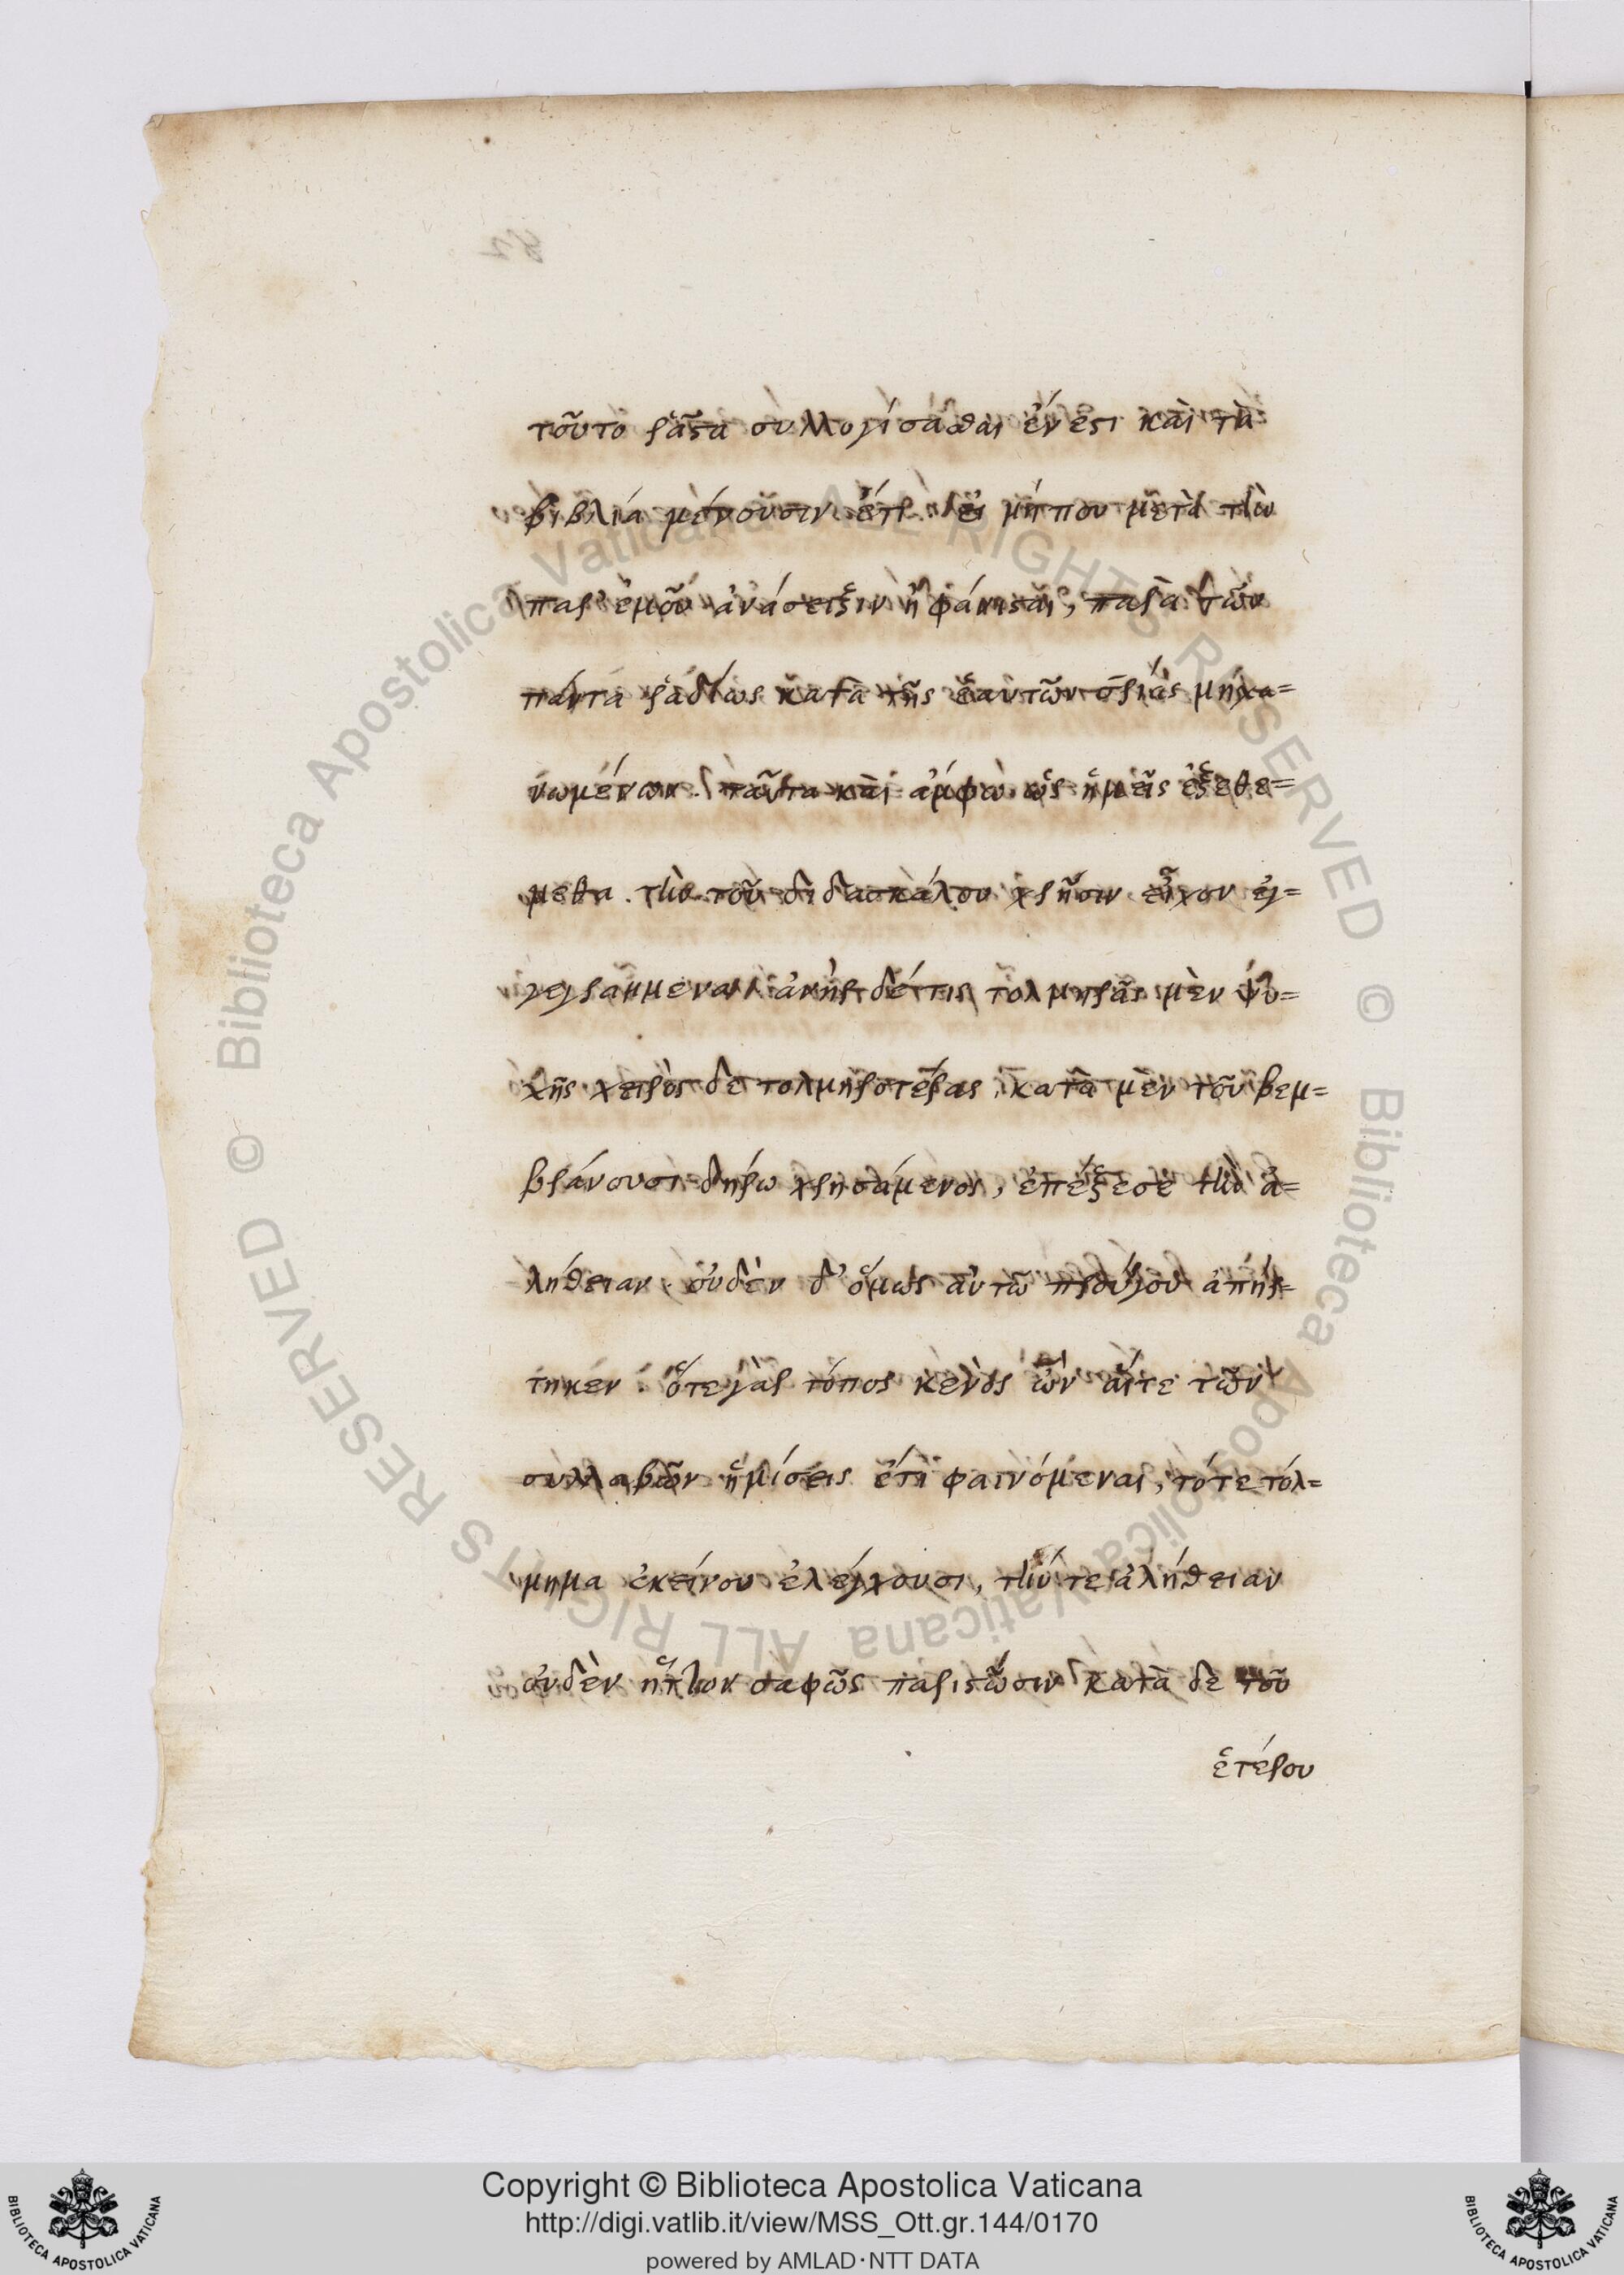 τοῦτο ῥᾶστα συλλογίσασθαι ἔνεστι καὶ τὰ
βιβλία μένουσιν ἔτι εἰ μήπου μετὰ τὴν
παρ' ἐμοῦ ἀνάδειξιν ἠφάνισται, παρὰ τῶν
πάντα ῥαδίως κατὰ τῆς ἑαυτῶν σωτηρίας μηχα=
νωμένων. ταῦτα καὶ ἄμφω ὡς ἡμεῖς ἐξεθε=
μεθα. τὴν τοῦ διδασκάλου χρῆσιν εἶχον ἐγ=
γεγραμμένα ἀνὴρ δέ τις τολμηρᾶς μὲν ψυ=
χῆς χειρὸς δὲ τολμηροτέρας, κατὰ μὲν τοῦ βεμ=
βράνου σιδήρω χρησάμενος, ἐπέξεσε τὴν ἀ=
λήθειαν. οὐδὲν δ' ὅμως αὐτῶ προὔργου ἀπήρ=
τηκεν. ὅτε γὰρ τόπος κενὸς ὢν αἵ τε τῶν
συλλαβῶν ἡμίσεις ἔτι φαινόμεναι, τό τε τόλ=
μημα ἐκείνου ἐλέγχουσι, τήν τε ἀλήθειαν
οὐδὲν ἧττον σαφῶς παριστῶσιν κατὰ δὲ τοῦ
ἑτέρου
Copyright © Biblioteca Apostolica Vaticana
http://digi.vatlib.it/view/MSS_Ott.gr.144/0170
powered by AMLAD·NTT DATA
BIBLIOTECA APOSTOLICA VATICANA
BIBLIOTECA APOSTOLICA VATICANA
© Biblioteca Apostolica Vaticana ALL RIGHTS RESERVED © Biblioteca Apostolica Vaticana ALL RIGHTS RESERVED